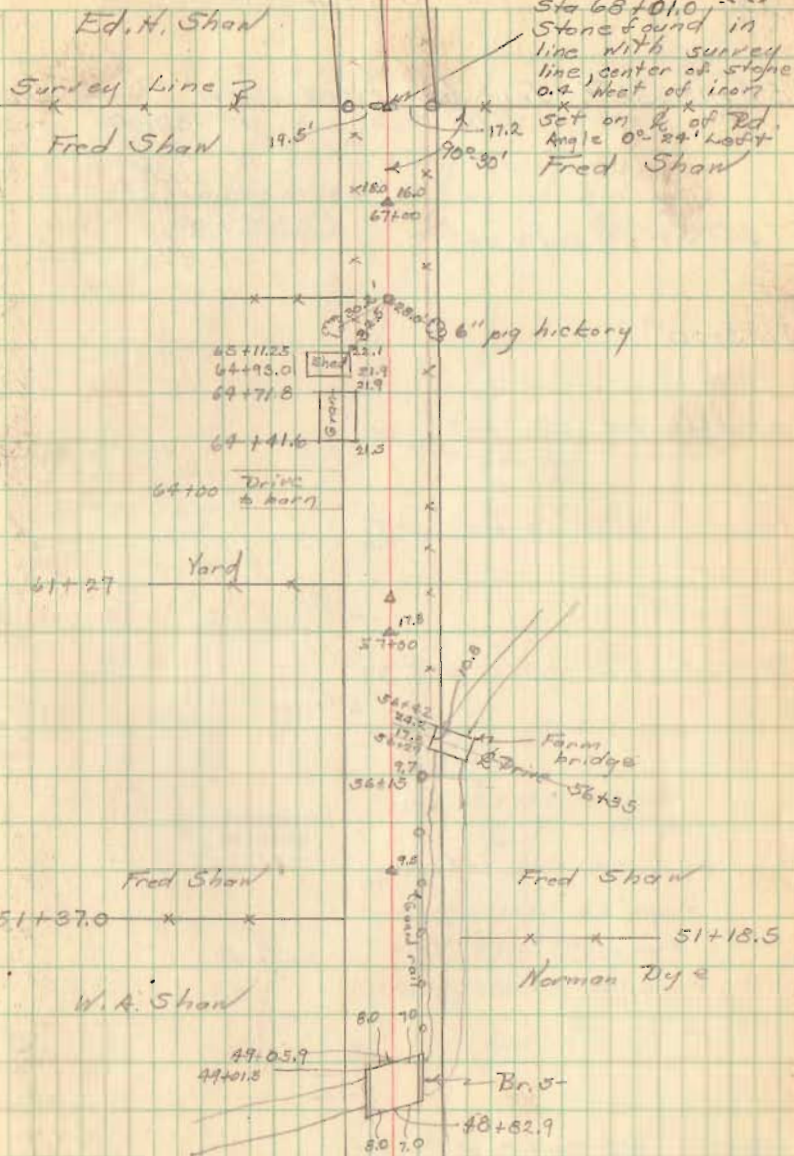 Ed. H. Shaw
Sta 68+01.0,
Stone found in
line with survey
line, center of stone
0.4' West of iron
set on ℄ of Rd.
Angle 0°-24' Left
Survey Line ?
Fred Shaw
19.5'
17.2
90°-30'
Fred Shaw
18.0 16.0
67+00
28.0'
6" pig hickory
65+11.25
Shed
22.1
64+93.0
21.9
64+71.8
21.9
Gran.
64+41.6
21.5
64+00
Drive
to barn
Yard
61+27
17.8
57+00
10.8
56+42
24.2
17.5
56+29
Farm
bridge
9.7
℄ Drive
56+35
56+15
9.5
Fred Shaw
Fred Shaw
51+37.0
Guard rail
51+18.5
Norman Dye
W. A. Shaw
8.0 7.0
49+05.9
49+01.8
Br. 5-
48+82.9
8.0 7.0